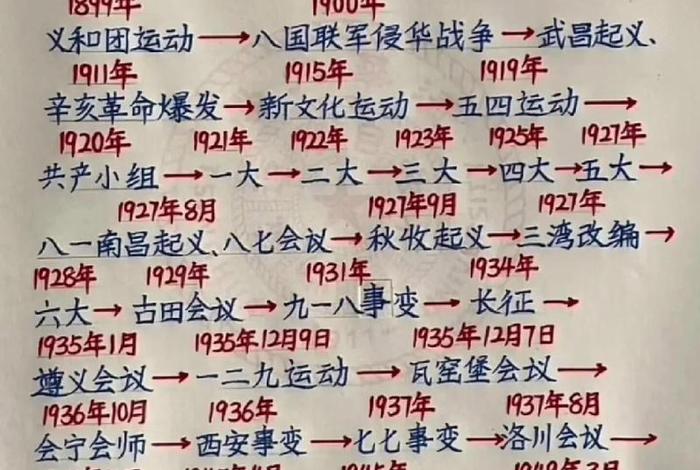 1899年 1900年
义和团运动→八国联军侵华战争→武昌起义、
1911年 1915年 1919年
辛亥革命爆发→新文化运动→五四运动→
1920年 1921年 1922年 1923年 1925年 1927年
共产小组→一大→二大→三大→四大→五大→
1927年8月 1927年9月 1927年
八一南昌起义、八七会议→秋收起义→三湾改编→
1928年 1929年 1931年 1934年
六大→古田会议→九一八事变→长征→
1935年1月 1935年12月9日 1935年12月7日
遵义会议→一二九运动→瓦窑堡会议→
1936年10月 1936年 1937年 1937年8月
会宁会师→西安事变→七七事变→洛川会议→